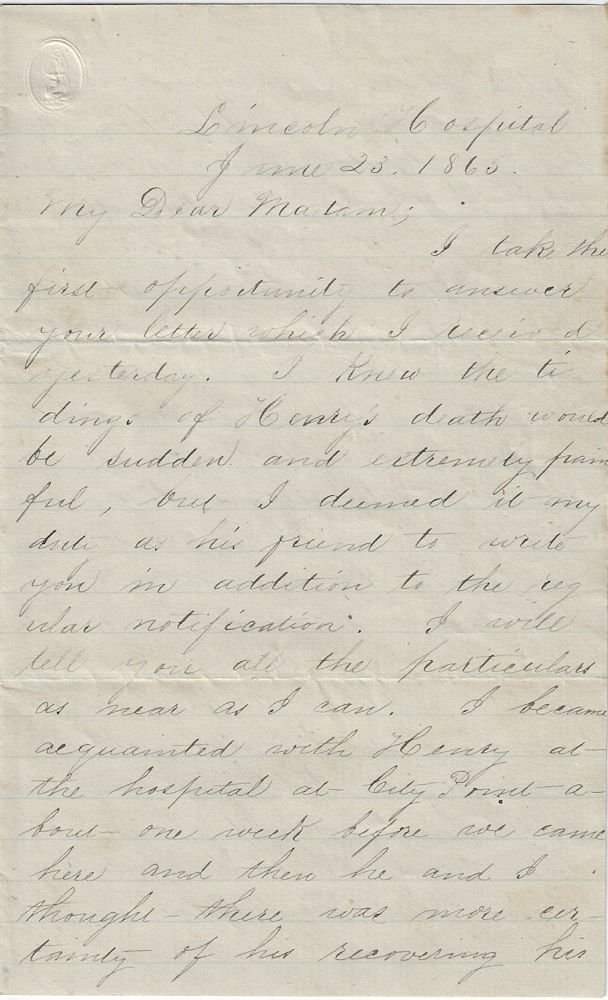 Lincoln Hospital
June 23. 1865.
My Dear Madam;
I take the
first opportunity to answer
your letter which I receiv d
yesterday. I knew the ti
dings of Henry's death would
be sudden and extremely pain
ful, but I deemed it my
duty as his friend to write
you in addition to the reg
ular notification. I will
tell you all the particulars
as near as I can. I became
acquainted with Henry at
the hospital at City Point a-
bout one week before we came
here and then he and I
thought there was more cer-
tainty of his recovering his